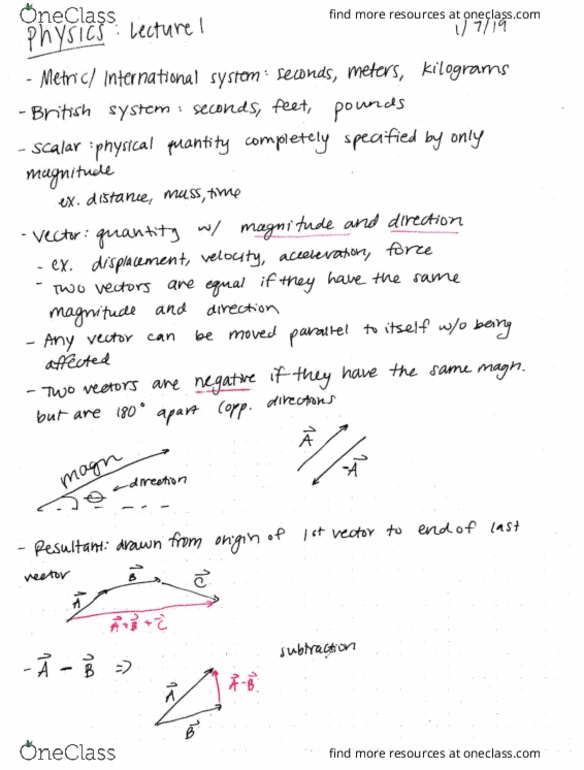 OneClass
find more resources at oneclass.com
PHYSICS: Lecture 1
1/7/19
- Metric/International system: seconds, meters, kilograms
- British system: seconds, feet, pounds
- scalar: physical quantity completely specified by only
magnitude
ex. distance, mass, time
- vector: quantity w/ magnitude and direction
- ex. displacement, velocity, acceleration, force
- Two vectors are equal if they have the same
magnitude and direction
- Any vector can be moved parallel to itself w/o being
affected
- Two vectors are negative if they have the same magn.
but are 180° apart (opp. directions
magn
θ
direction
A⃗
-A⃗
- Resultant: drawn from origin of 1st vector to end of last
vector
A⃗
B⃗
C⃗
A⃗+B⃗+C⃗
subtraction
- A⃗ - B⃗ =>
A⃗
A⃗-B⃗
B⃗
OneClass
find more resources at oneclass.com